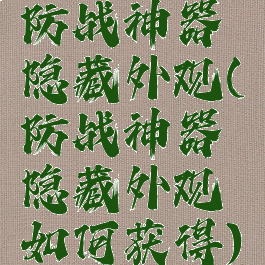 防战神器
隐藏外观(
防战神器
隐藏外观
如何获得)